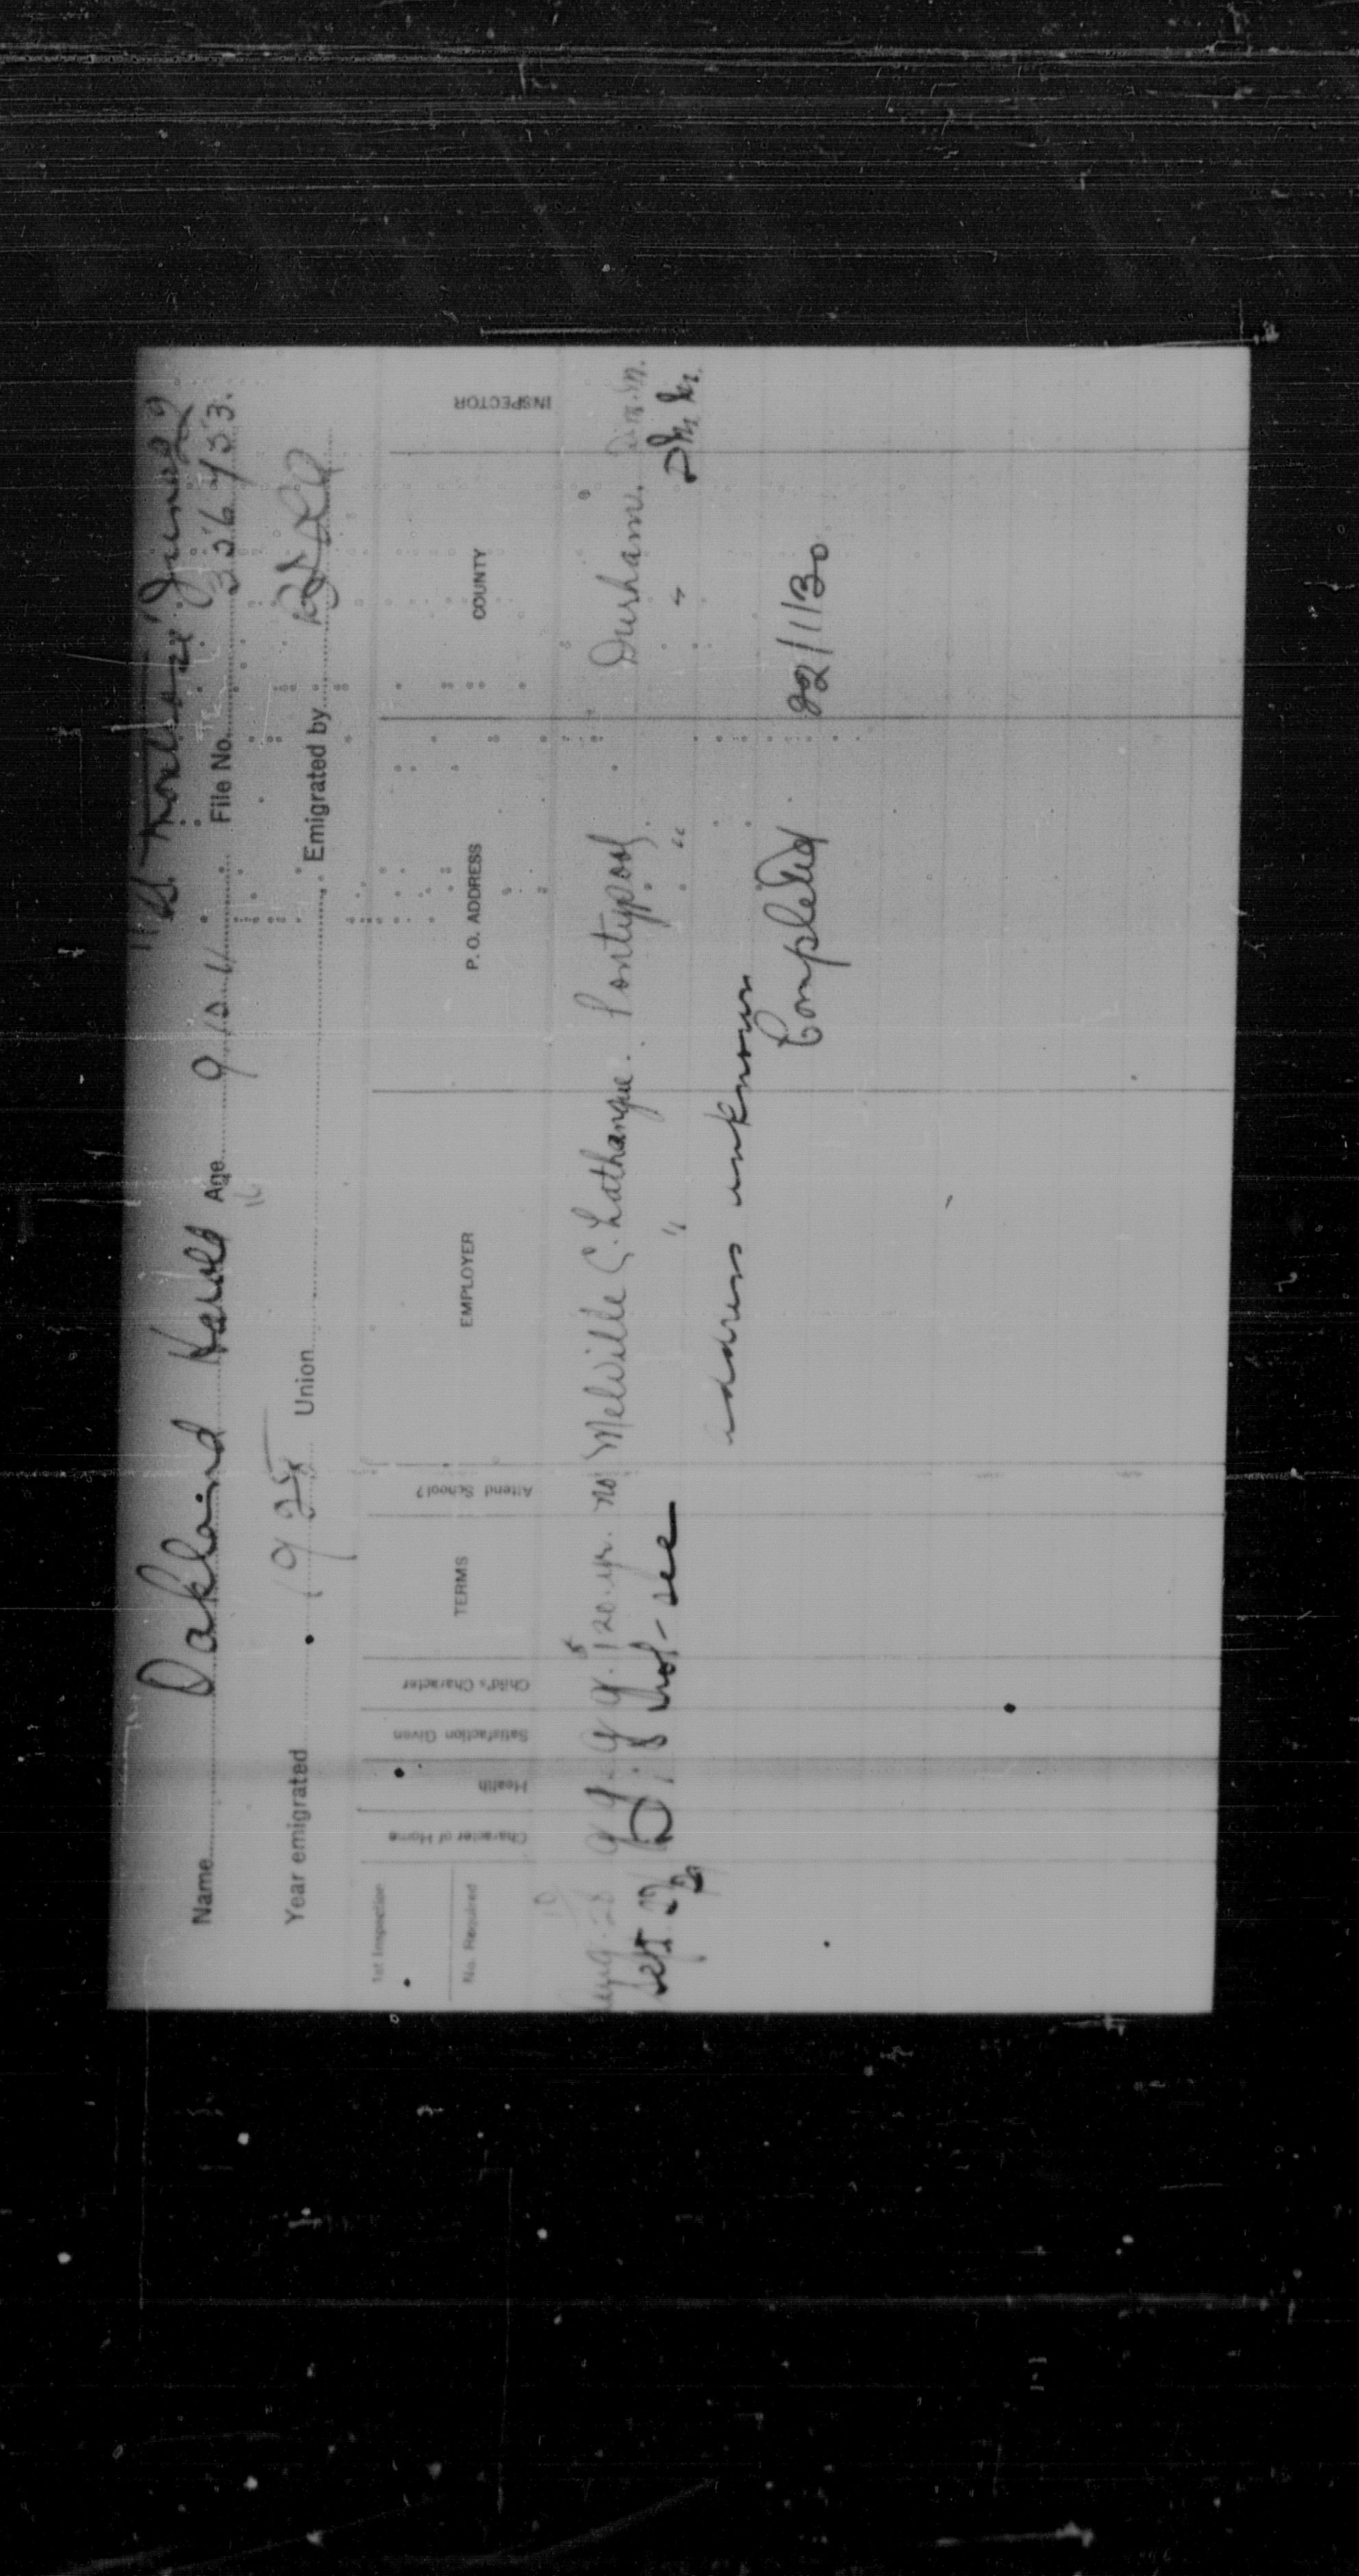 "St. Montrose" June 29
Name Oakland Harold Age 9.10.11 File No. 326753.
16
Year emigrated 1925 Union Emigrated by
1st Inspection
No. Required
Character of Home Health Satisfaction Given Child's Character TERMS Attend School? EMPLOYER P. O. ADDRESS COUNTY INSPECTOR
Aug. 28 g g g g. 120. yr. no Melville C. Lathangue. Pontypool. Durham.
Sept 27 D; g not-see " " "
29
address unknown
Completed 22/1/30